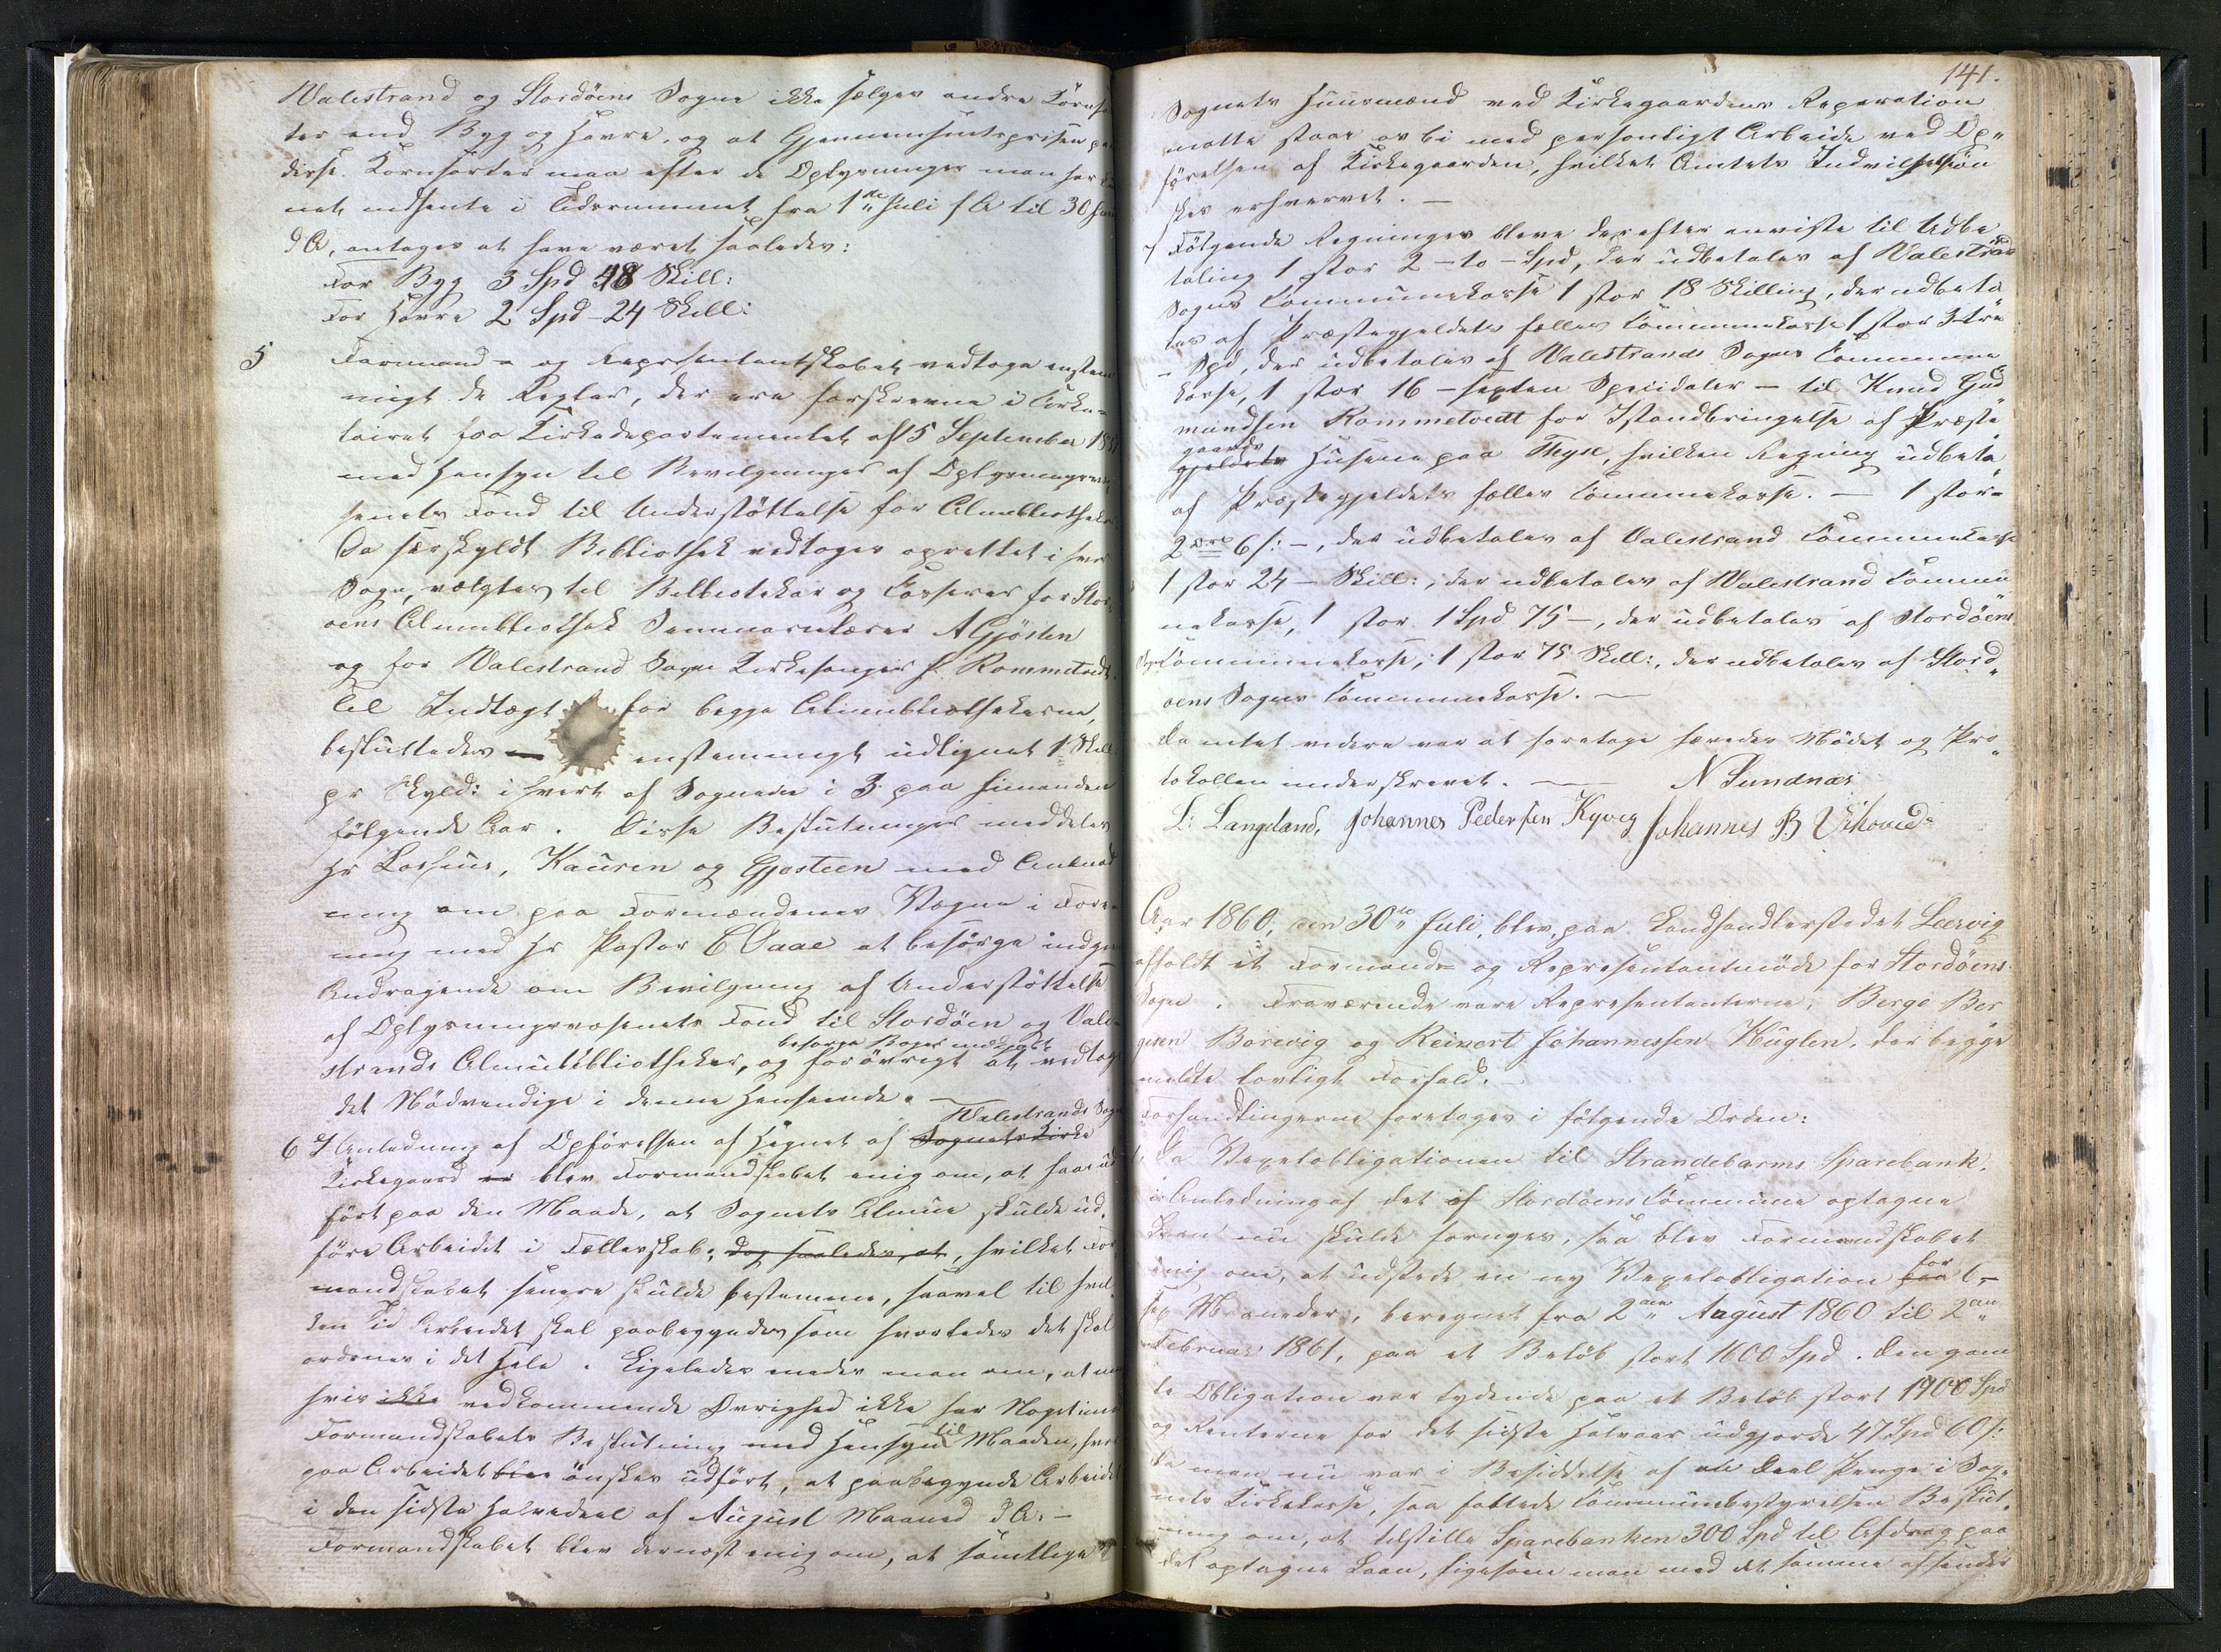 Walestrand og Stordöens Sogne ikke sælges andre Korns
ter end Byg og Havre, og at Gjennemsnitsprisen pa
disse Kornsorter maa efter de Oplysninger man har
net indhente i Tidsrummet fra 1ste Juli f A til 30 Jun
d A, antages at have været saaledes:
For Byg 3 Spd 48 Skill:
For Havre 2 Spd - 24 Skill:
5 Formand- og Repræsentantskabet vedtoge enstem
migt de Regler, der ere foreskrevne i Cirku-
lairet fra Kirkedepartementet af 15 September 18
med Hensyn til Bevilgninger af Oplysningsvæ
senets Fond til Understöttelse for Almubliotheke
Da særskyldt Bibliothek vedtoges oprettet i hver
Sogn, valgtes til Bibliotekar og Casserer for Stor
öens Almubliothek Seminarielærer A Gjösten
og for Walestrand Sogn Kirkesanger H. Rommetvedt.
Til Indtægt for begge Almubliothekerne,
besluttedes enstemmigt udlignet 1 Skill
pr Skyld: i hvert af Sognene i 3 paa hinanden
fölgende Aar. Disse Beslutninger meddeles
Hr Losius, Kauren og Gjosteen med Anmod
ning om paa Formændenes Vegne i Fore-
ning med Hr Pastor C Daae at besörge indgi
Andragende om Bevilgning af Understöttelse
af Oplysningsvæsenets Fond til Stordöen og Vale-
besörge Böger indkjöbt
strands Almubibliotheker, og forövrigt at vedtage
det Nödvendige i denne Henseende. -
Walestrands Sogn
6 I Anledning af Opförelsen af Hegnet af Sognets Kirke
Kirkegaard blev Formandskabet enig om, at faae ud
fört paa den Maade, at Sognets Almue skulde ud-
före Arbeidet i Fællesskab, dog saaledes, at, hvilket For
mandskabet senere skulde bestemme, saavel til hvil-
ken Tid Arbeidet skal paabegyndes som hvorledes det skal
ordnes i det Hele. Ligeledes enedes man om, at
hvis ikke vedkommende Övrighed ikke har Noget imod
til
Formandskabets Beslutning med Hensyn Maaden, hvor
paa Arbeidet blev önskes udfört, at paabegynde Arbeidet
i den sidste Halvedeel af August Maaned d A. -
Formandskabet blev dernæst enig om, at samtlige
141.
Sognets Huusmænd ved Kirkegaardens Reparation
maatte staae os bi med personligt Arbeide ved Op-
förelsen af Kirkegaarden, hvilket Amtets Indvilgelse
skes erhvervet. -
7 Fölgende Regninger bleve derefter anviste til Udbe
taling 1 stor 2 - to - Spd, der udbetales af Walestrands
Sogns Communekasse 1 stor 18 Skilling, der udbeta
les af Præstegjeldets fælles Communekasse 1 stor 3 tre
- Spd, der udbetales af Walestrands Sogns Commune
kasse, 1 stor 16 - sexten Speciedaler - til Knud Gud
mundsen Rommetvedt for Istandbringelse af Præste
gaards
gjeldets Husene paa Thyse, hvilken Regning udbeta
af Præstegjeldets fælles Communekasse. - 1 stor-
2 6 s: -, der udbetales af Valestrand Communekasse
1 stor 24 - Skill:, der udbetales af Walestrand Commu
nekasse, 1 stor 1 Spd 75 -, der udbetales af Stordöens
Sogns Communekasse; 1 stor 75 Skill:, der udbetales af Stord
öens Sogns Communekasse. -
Da intet videre var at foretage hævedes Mödet og Pro
tokollen underskrevet. - N Sundnæs
L: Langeland, Johannes Pedersen Kyvig Johannes B Vihovde
Aar 1860, den 30te Juli, blev paa Landhandlerstedet Leervig
afholdt et Formands- og Repræsentantmöde for Stordöens
Sogn. Fraværende vare Repræsentanterne, Berge Ber
gesen Borevig og Reinert Johannessen Huglen, der begge
meldte lovligt Forfald. -
Forhandlingerne foretoges i fölgende Orden:
1, Da Vexelobligationen til Strandebarms Sparebank,
i Anledning af det af Stordöens Commune optagne
Laan nu skulde fornyes, saa blev Formandskabet
for
enig om, at udstede en ny Vexelobligation paa 6-
sex Maaneder, beregnet fra 2den August 1860 til 2den
Februar 1861, paa et Belöb stort 1600 Spd. Den gam
le Obligation var lydende paa et Belöb stort 1900 Spd
og Renterne for det sidste Halvaar udgjorde 47 Spd 60 s:
Da man nu var i Besiddelse af en Deel Penge i Sog-
nets Kirkekasse, saa fattede Communebestyrelsen Beslut-
ning om, at tilstille Sparebanken 300 Spd til Afdrag paa
det optagne Laan, ligesom man med det samme afsender